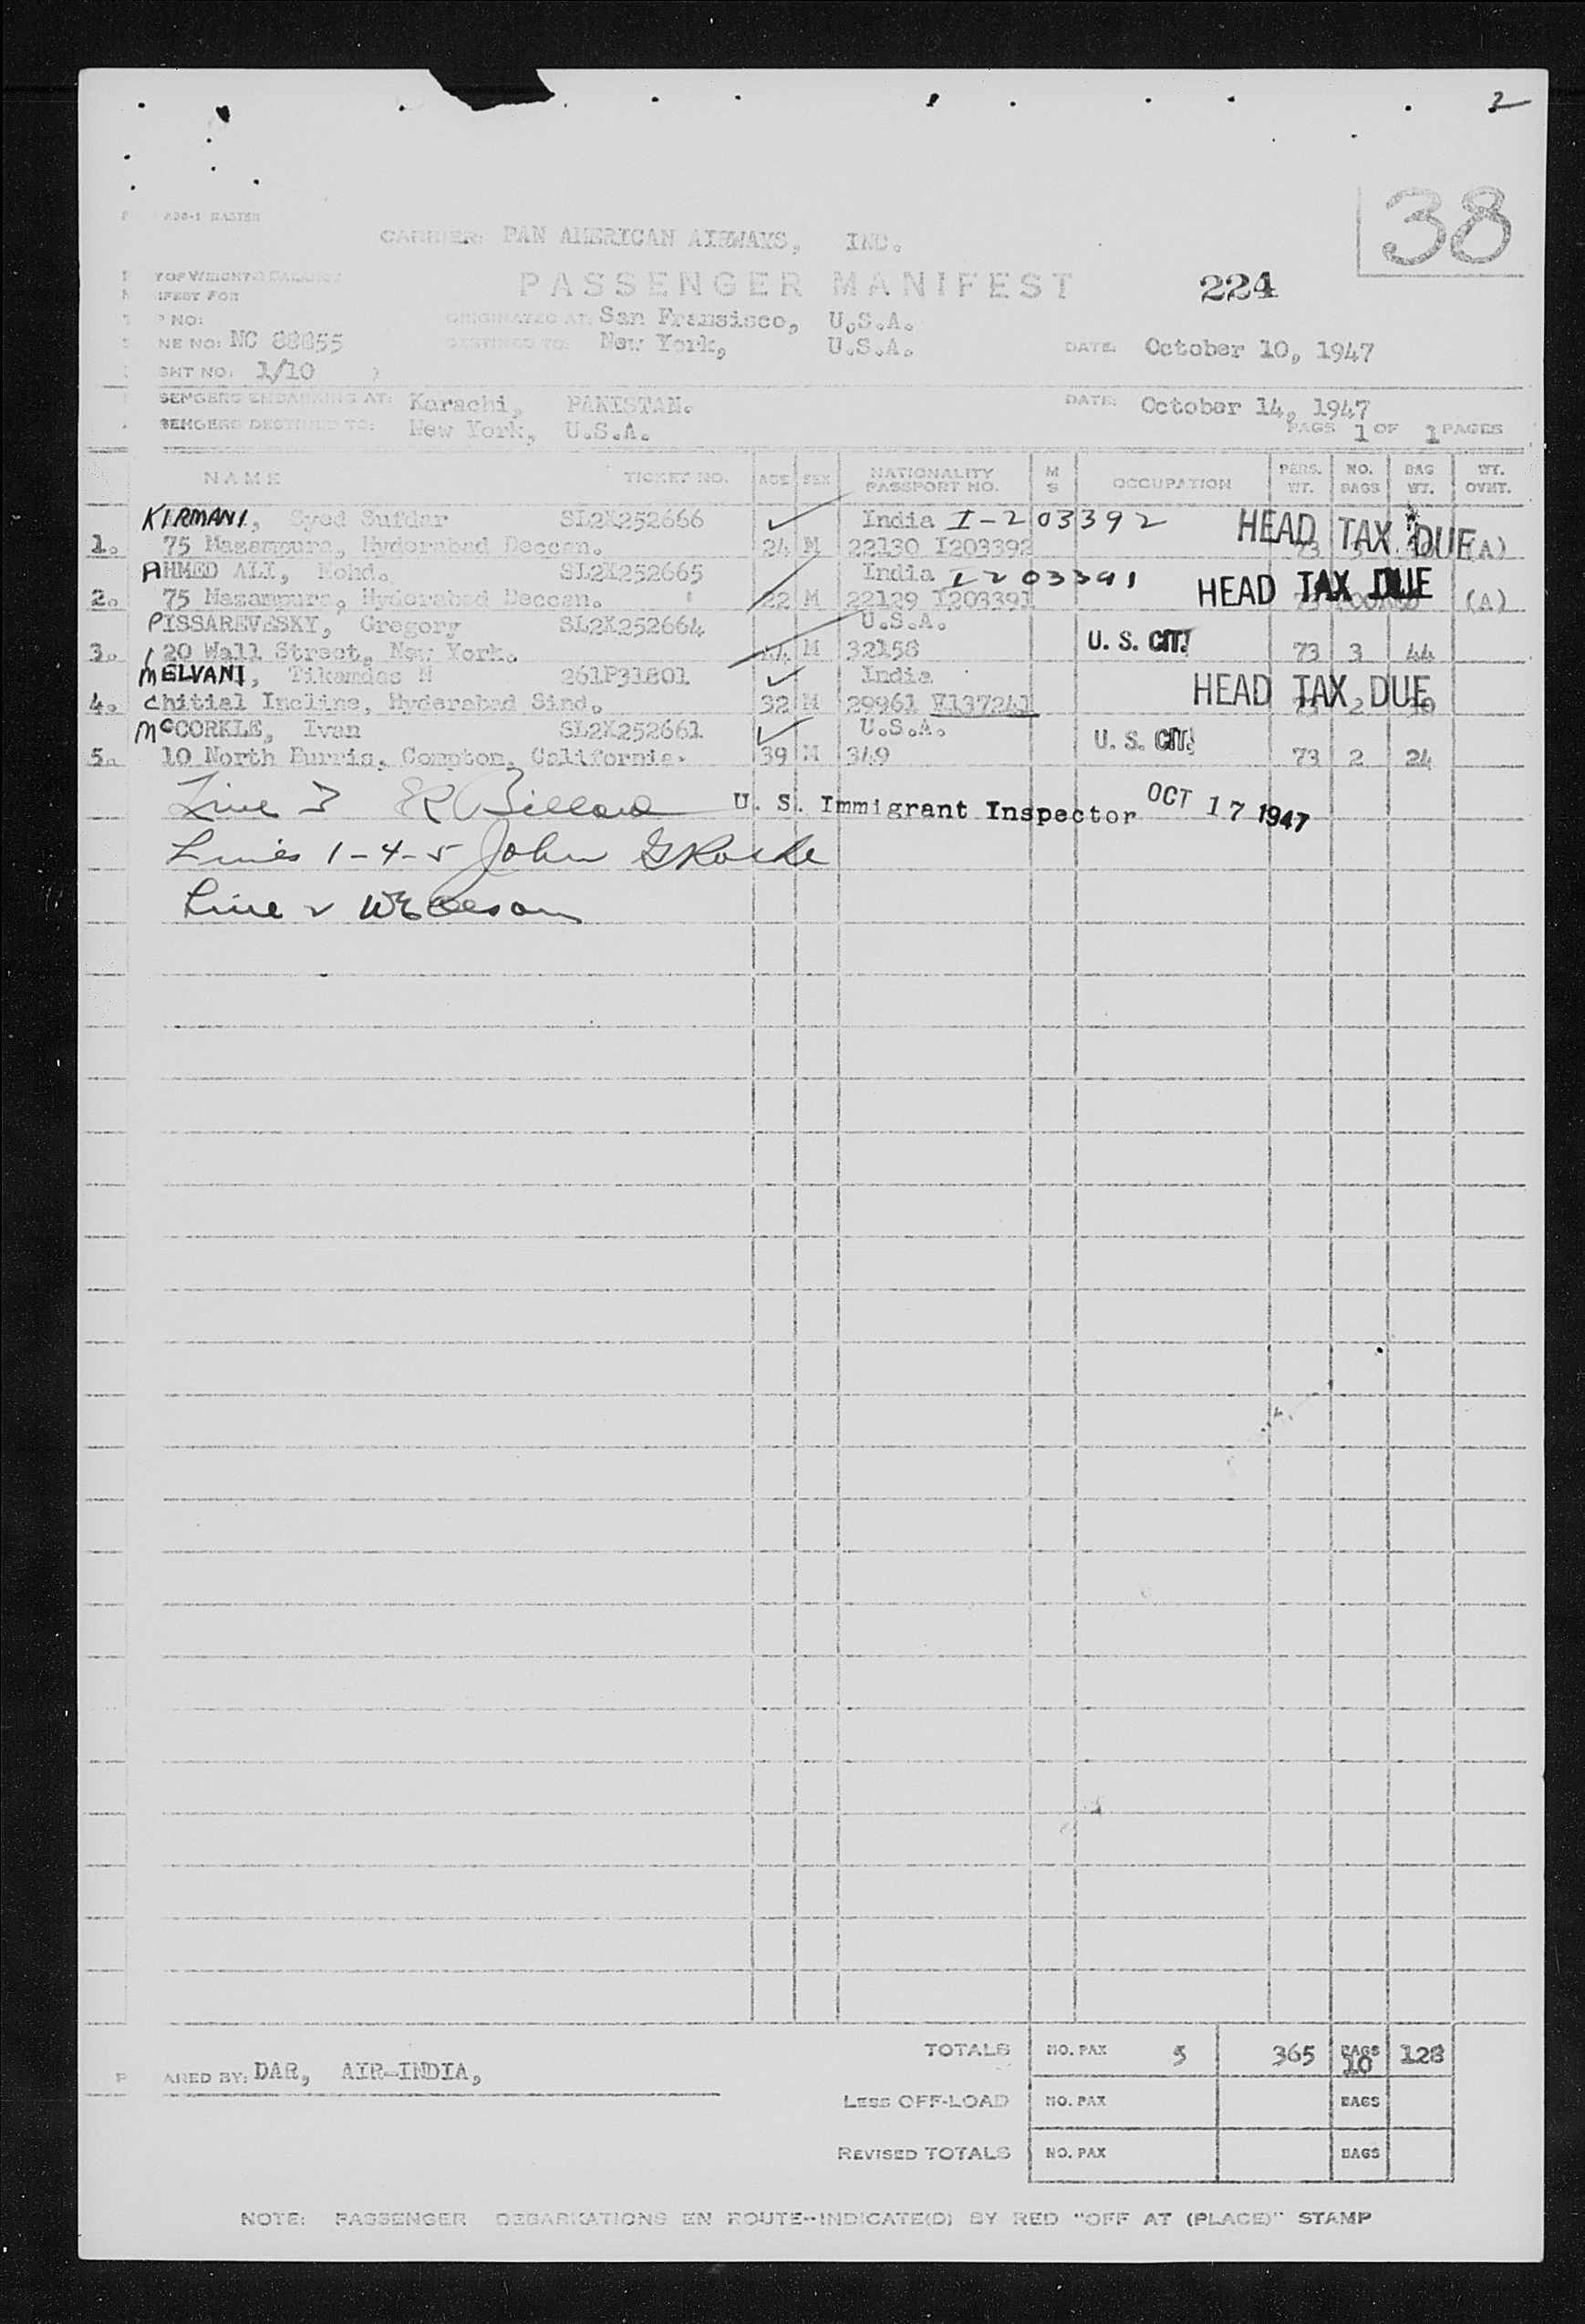 2
38
436-1 MASTER
CARRIER: PAN AMERICAN AIRWAYS, INC.
PASSENGER MANIFEST
224
IFEST FOR
P NO:
ORIGINATED AT: San Fransisco, U.S.A.
NE NO: NC 88855
DESTINED TO: New York, U.S.A.
DATE: October 10, 1947
GHT NO: 1/10 )
SENGERS EMBARKING AT: Karachi, PAKISTAN.
DATE: October 14, 1947
SENGERS DESTINED TO: New York, U.S.A.
PAGE 1 OF 1 PAGES
NAME TICKET NO. AGE SEX NATIONALITY PASSPORT NO. M S OCCUPATION PERS. WT. NO. BAGS BAG WT. WT. OVHT.
KIRMANI, Syed Sufdar SL2X252666 India I-203392 HEAD TAX DUE
1. 75 Masampura, Hyderabad Deccan. 24 M 22130 I203392 73 (A)
AHMED ALI, Mohd. SL2X252665 India I203391 HEAD TAX DUE
2. 75 Masampura, Hyderabad Deccan. 22 M 22129 I203391 73 (A)
PISSAREVESKY, Gregory SL2X252664 U.S.A. U. S. CIT.
3. 120 Wall Street, New York. 44 M 32158 73 3 44
MELVANI, Tikamdas N 261P31801 India HEAD TAX DUE
4. Chitial Incline, Hyderabad Sind. 32 M 29961 V137241 73 2 30
McCORKLE, Ivan SL2X252661 U.S.A. U. S. CIT.
5. 10 North Burris, Compton, California. 39 M 349 73 2 24
Line 3 Billard U. S. Immigrant Inspector OCT 17 1947
Lines 1-4-5 John
Line 2
TOTALS NO. PAX 5 365 BAGS 10 128
ARED BY: DAR, AIR-INDIA,
LESS OFF-LOAD NO. PAX BAGS
REVISED TOTALS NO. PAX BAGS
NOTE: PASSENGER DEBARKATIONS EN ROUTE--INDICATE(D) BY RED "OFF AT (PLACE)" STAMP